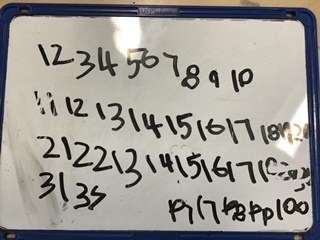 12 3 4 5 6 7 8 9 10
11 12 13 14 15 16 17 18 19 20
21 22 13 14 15 16 17
31 35 17 100